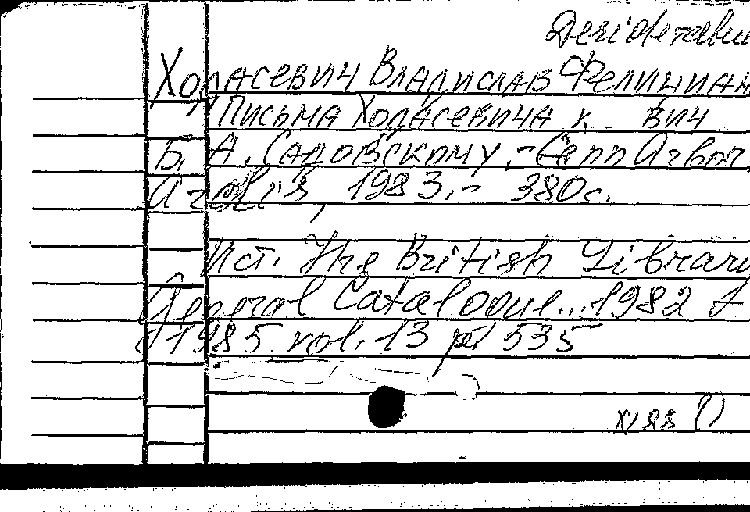 Desiderata
Ходасевич Владислав Фелициан
Письма Ходасевича к вич
Б. А. Садовскому.- Ann Arbor,
Ardis, 1983.- 380с.
Ист. The British Library
General Catalogue...1982 t
1985 vol. 13 p 535